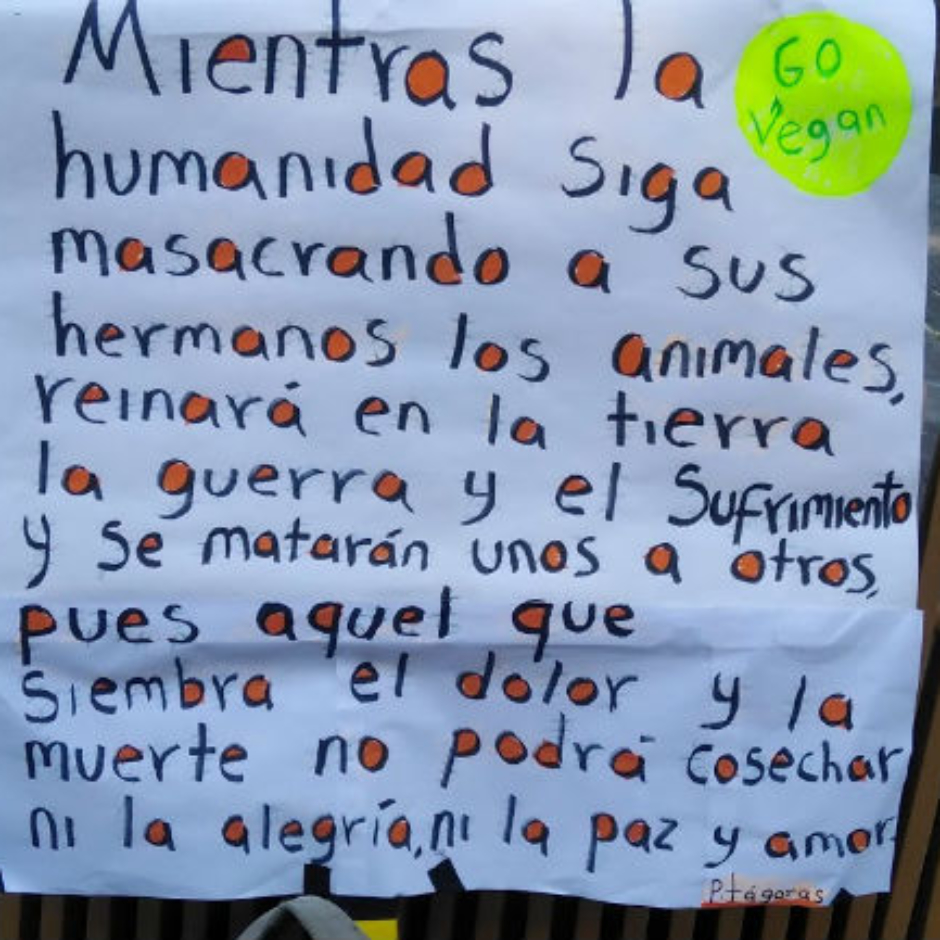 Mientras la
GO
Vegan
humanidad siga
masacrando a sus
hermanos los animales,
reinará en la tierra
la guerra y el Sufrimiento
y se matarán unos a otros,
pues aquel que
siembra el dolor y la
muerte no podrá cosechar
ni la alegría, ni la paz y amor.
Pitágoras